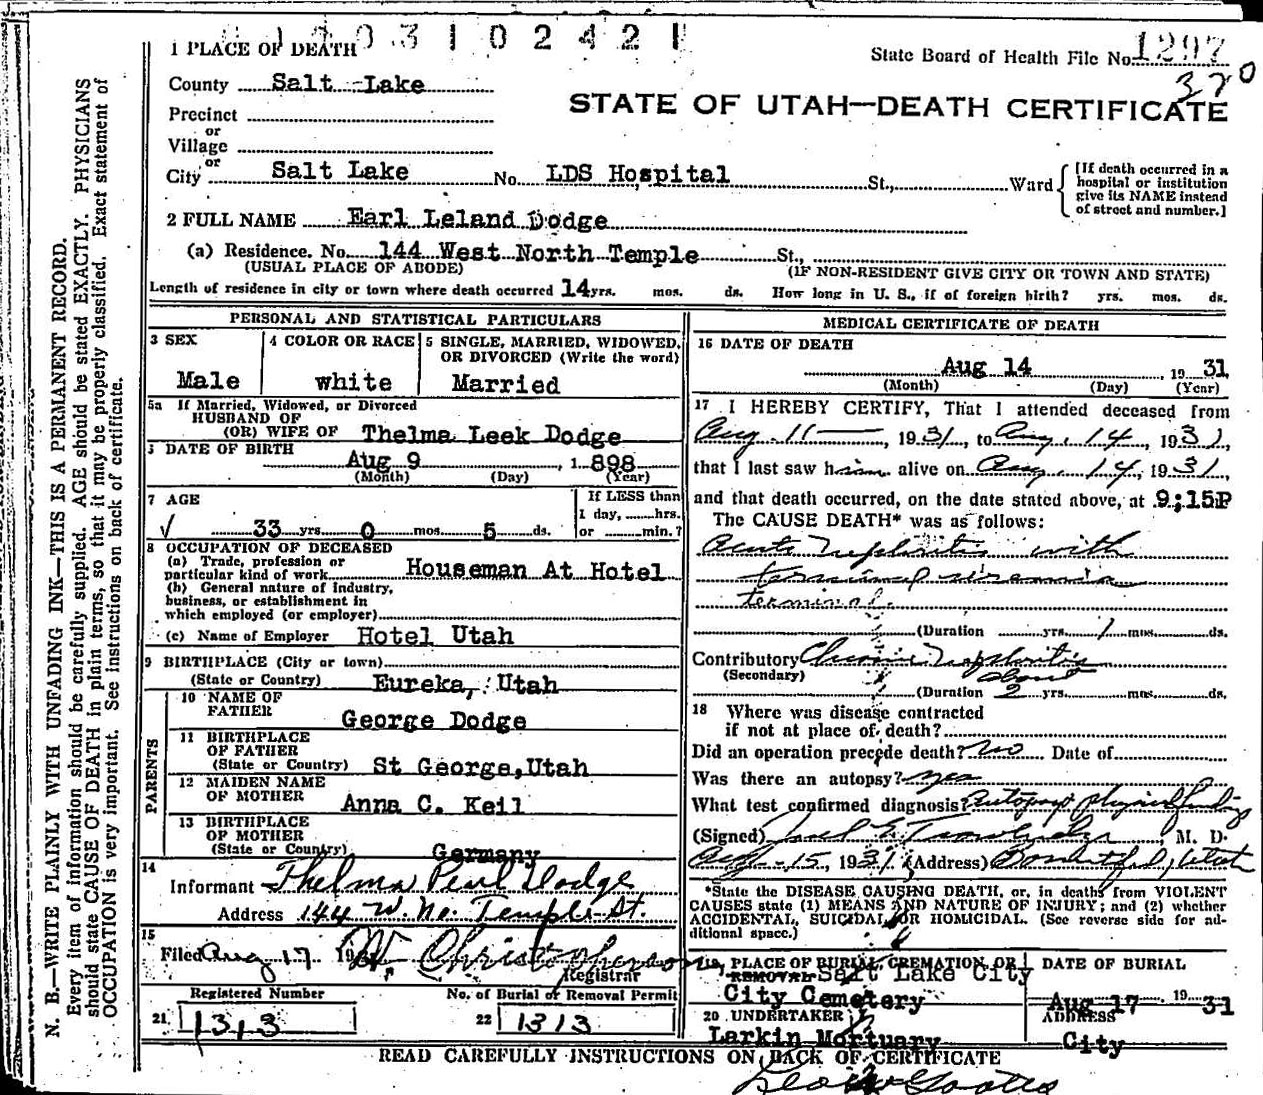 3 1 0 2 4 2 1
1 PLACE OF DEATH
State Board of Health File No. 1297
370
County Salt Lake
STATE OF UTAH—DEATH CERTIFICATE
Precinct
or
Village
or
City Salt Lake No. LDS Hospital St., Ward
[If death occurred in a hospital or institution give its NAME instead of street and number.]
2 FULL NAME Earl Leland Dodge
(a) Residence. No. 144 West North Temple St.,
(USUAL PLACE OF ABODE) (IF NON-RESIDENT GIVE CITY OR TOWN AND STATE)
Length of residence in city or town where death occurred 14 yrs. mos. ds. How long in U. S., if of foreign birth? yrs. mos. ds.
PERSONAL AND STATISTICAL PARTICULARS
3 SEX
Male
4 COLOR OR RACE
white
5 SINGLE, MARRIED, WIDOWED, OR DIVORCED (Write the word)
Married
5a If Married, Widowed, or Divorced
HUSBAND OF
(OR) WIFE OF Thelma Leek Dodge
DATE OF BIRTH
Aug 9, 1898
(Month) (Day) (Year)
7 AGE
√ 33 yrs. 0 mos. 5 ds.
If LESS than
1 day, hrs.
or min.?
8 OCCUPATION OF DECEASED
(a) Trade, profession or
particular kind of work Houseman At Hotel
(b) General nature of industry,
business, or establishment in
which employed (or employer)
(c) Name of Employer Hotel Utah
9 BIRTHPLACE (City or town)
(State or Country) Eureka, Utah
PARENTS
10 NAME OF
FATHER George Dodge
11 BIRTHPLACE
OF FATHER
(State or Country) St George, Utah
12 MAIDEN NAME
OF MOTHER Anna C. Keil
13 BIRTHPLACE
OF MOTHER
(State or Country) Germany
14
Informant Thelma Pearl Dodge
Address 144 W. No. Temple St.
15
Filed Aug 17 1931 Christopherson
Registrar
Registered Number
21 1313
No. of Burial or Removal Permit
22 1313
MEDICAL CERTIFICATE OF DEATH
16 DATE OF DEATH
Aug 14, 1931
(Month) (Day) (Year)
17 I HEREBY CERTIFY, That I attended deceased from
Aug. 11, 1931, to Aug. 14, 1931,
that I last saw him alive on Aug. 14, 1931,
and that death occurred, on the date stated above, at 9;15P
The CAUSE DEATH* was as follows:
Acute Nephritis with
terminal uremia
terminal.
(Duration yrs. 1 mos. ds.
Contributory Chronic Nephritis
(Secondary) about
(Duration 2 yrs. mos. ds.
18 Where was disease contracted
if not at place of death?
Did an operation precede death? No Date of
Was there an autopsy? Yes
What test confirmed diagnosis? Autopsy physical findings
(Signed) M. D.
15, 1931 (Address) Bountiful, Utah
*State the DISEASE CAUSING DEATH, or, in deaths from VIOLENT
CAUSES state (1) MEANS AND NATURE OF INJURY; and (2) whether
ACCIDENTAL, SUICIDAL, OR HOMICIDAL. (See reverse side for additional space.)
19 PLACE OF BURIAL, CREMATION, OR
REMOVAL Salt Lake City
City Cemetery
DATE OF BURIAL
Aug 17, 1931
20 UNDERTAKER
Larkin Mortuary
ADDRESS
City
READ CAREFULLY INSTRUCTIONS ON BACK OF CERTIFICATE
N. B.—WRITE PLAINLY WITH UNFADING INK—THIS IS A PERMANENT RECORD.
Every item of information should be carefully supplied. AGE should be stated EXACTLY. PHYSICIANS
should state CAUSE OF DEATH in plain terms, so that it may be properly classified. Exact statement of
OCCUPATION is very important. See instructions on back of certificate.